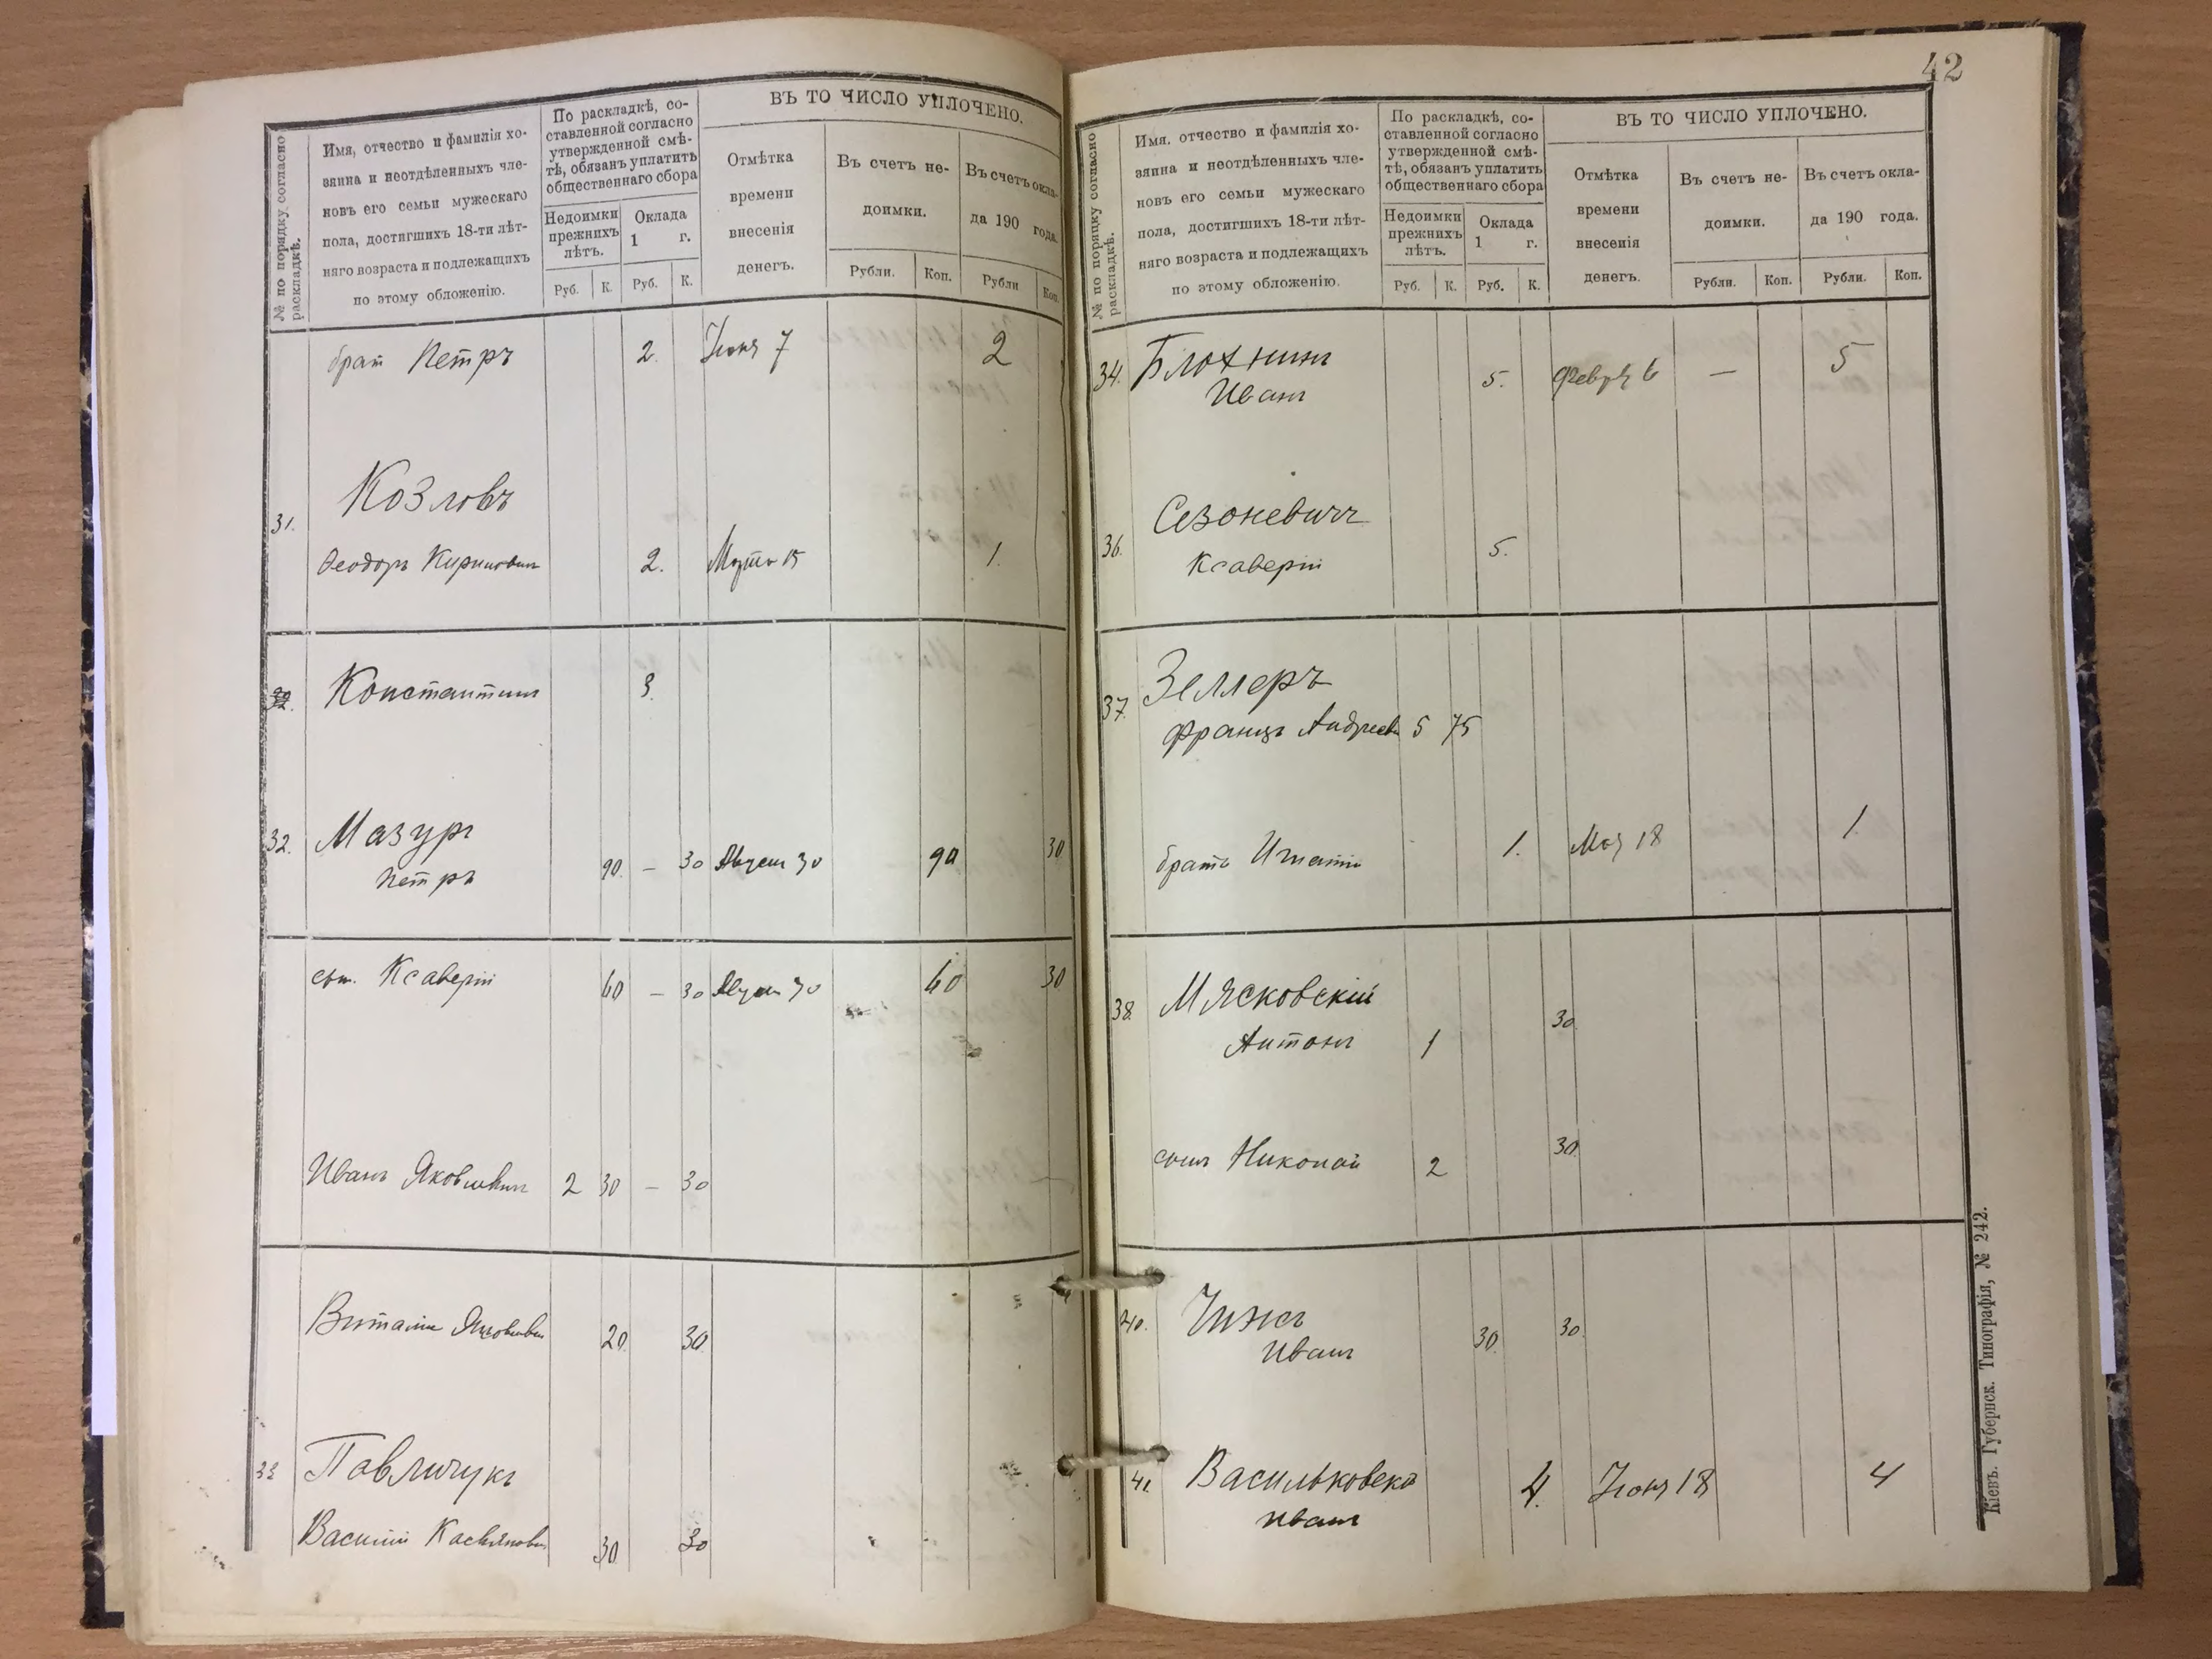 № по порядку согласно раскладкѣ.
Имя, отчество и фамилія хо-
зяина и неотдѣленныхъ чле-
новъ его семьи мужескаго
пола, достигшихъ 18-ти лѣт-
няго возраста и подлежащихъ
по этому обложенію.
По раскладкѣ, со-
ставленной согласно
утвержденной смѣ-
тѣ, обязанъ уплатить
общественнаго сбора
Недоимки прежнихъ лѣтъ.
Оклада 1 г.
Руб. К. Руб. К.
ВЪ ТО ЧИСЛО УПЛОЧЕНО.
Отмѣтка
времени
внесенія
денегъ.
Въ счетъ не-
доимки.
Въ счетъ окла-
да 190 года.
Рубли. Коп. Рубли Коп.
братъ Петръ 2. Іюня 7 2
Козловъ
31.
Ѳеодоръ 2. 15 1.
32. Константинъ 3.
32. Мазуръ
Петръ 90. — 30 Август 30 90 30
сын. Ксаверій 60 — 30 Август 30 60 30
Иванъ Яковлевичъ 2 30 — 30
Виталій Яковлевич 20. 30
33 Павличукъ
Василій Касьянович 30 30
42
№ по порядку согласно раскладкѣ.
Имя. отчество и фамилія хо-
зяина и неотдѣленныхъ чле-
новъ его семьи мужескаго
пола, достигшихъ 18-ти лѣт-
няго возраста и подлежащихъ
по этому обложенію.
По раскладкѣ, со-
ставленной согласно
утвержденной смѣ-
тѣ, обязанъ уплатить
общественнаго сбора
Недоимки прежнихъ лѣтъ.
Оклада 1 г.
Руб. К. Руб. К.
ВЪ ТО ЧИСЛО УПЛОЧЕНО.
Отмѣтка
времени
внесенія
денегъ.
Въ счетъ не-
доимки.
Въ счетъ окла-
да 190 года.
Рубли. Коп. Рубли. Коп.
34. Блохинъ
Иванъ 5. Февр 6 — 5
Сезоневичъ
36. Ксаверій 5.
37. Зеллеръ
Францъ Андреев 5 75
братъ Игнатій 1. Мая 18 1
38. Мясковскій 30
Антонъ 1
сынъ Николай 2 30
40. Чижъ 30. 30.
Иванъ
41. Васильковскій 4. Іюня 18 4
Иванъ
Кіевъ. Губернск. Типографія, № 242.